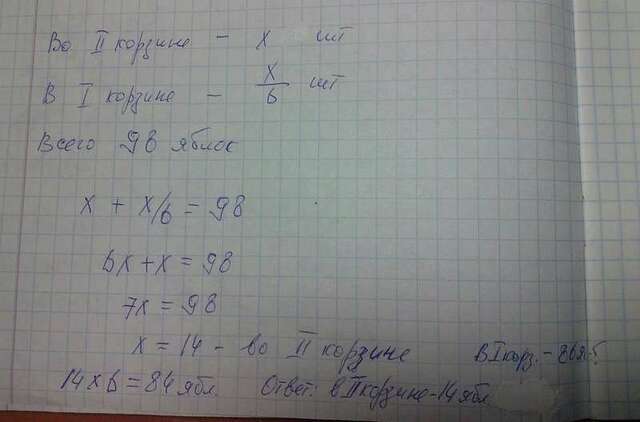 Во II корзине – x шт
В I корзине – x/6 шт
Всего 98 яблок
x + x/6 = 98
6x + x = 98
7x = 98
x = 14 – во II корзине
В I корз. –
14 x 6 = 84 ябл. Ответ: в II корзине – 14 ябл